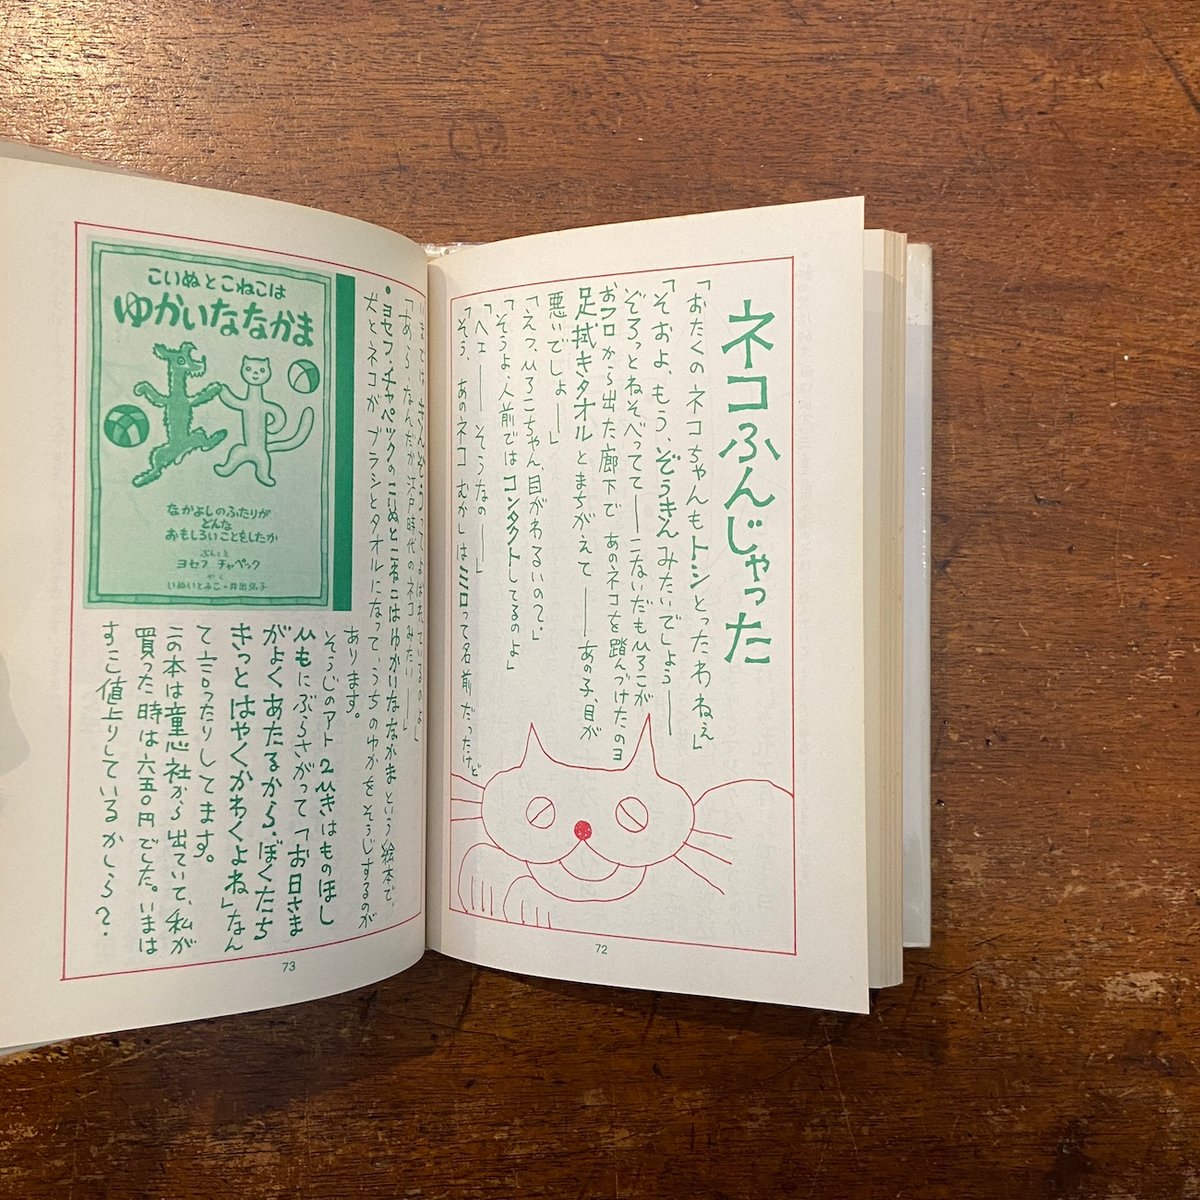 ネコふんじゃった
「おたくのネコちゃんもトシとったわねぇ」
「そおよ、もう、ぞうきんみたいでしょうー
ぞろっとねそべってて―こないだもひろこが
おフロから出た廊下であのネコを踏んづけたのヨ
足拭きタオルとまちがえて―あの子、目が
悪いでしょー」
「えっ、ひろこちゃん、目がわるいの?」
「そうよ、人前ではコンタクトしてるのよ」
「ヘェ――そうなの―」
「そう、あのネコむかしはミロって名前だったけど
72
いまでは
ってよばれているのよ」
「あーら、なんだか江戸時代のネコみたいー」
●ヨセフ・チャペックのこいぬとこねこはゆかいななかまという絵本で、
犬とネコがブラシとタオルになって、うちのゆかをそうじするのが
あります。
そうじのアト2ひきはものほし
ひもにぶらさがって「お日さま
がよくあたるから、ぼくたち
きっとはやくかわくよね」なん
て言ったりしてます。
この本は童心社から出ていて、私が
買った時は六五〇円でした。いまは
すこし値上りしているかしら?
こいぬとこねこは
ゆかいななかま
なかよしのふたりが
どんな
おもしろいことをしたか
ぶんとえ
ヨセフ チャペック
やく
いぬいとみこ・井出弘子
73